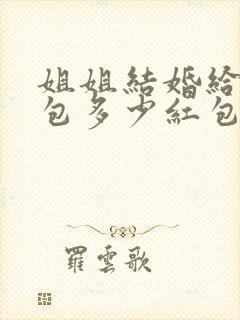 姐姐結婚給
包多少紅包
羅雲歌